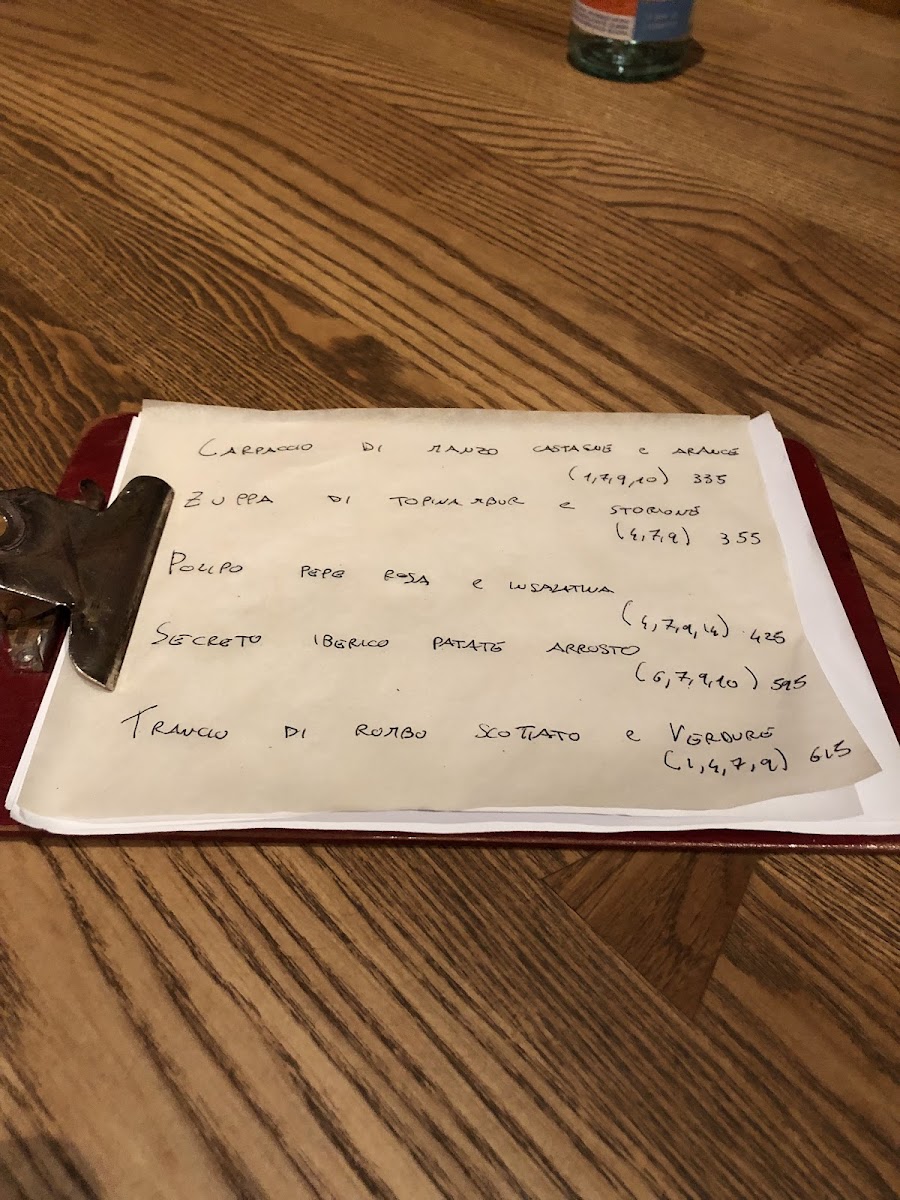 CARPACCIO DI MANZO CASTAGNE E ARANCE
(1,7,9,10) 335
ZUPPA DI TOPINAMBUR E STORIONE
(4,7,9) 355
POLIPO PEPE ROSA E INSALATINA
(4,7,9,14) 425
SECRETO IBERICO PATATE ARROSTO
(6,7,9,10) 595
TRANCIO DI ROMBO SCOTTATO E VERDURE
(1,4,7,9) 615